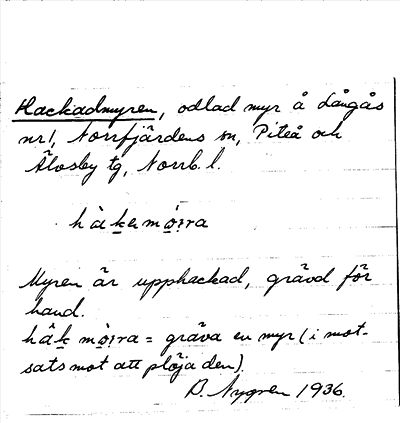 Hackadmyren, odlad myr å Långås
nr 1, Norrfjärdens sn, Piteå och
Älvsby tg, Norrb. l.
Myren är upphackad, grävd för
hand.
= gräva en myr (i mot-
sats mot att plöja den).
B. Nygren 1936.